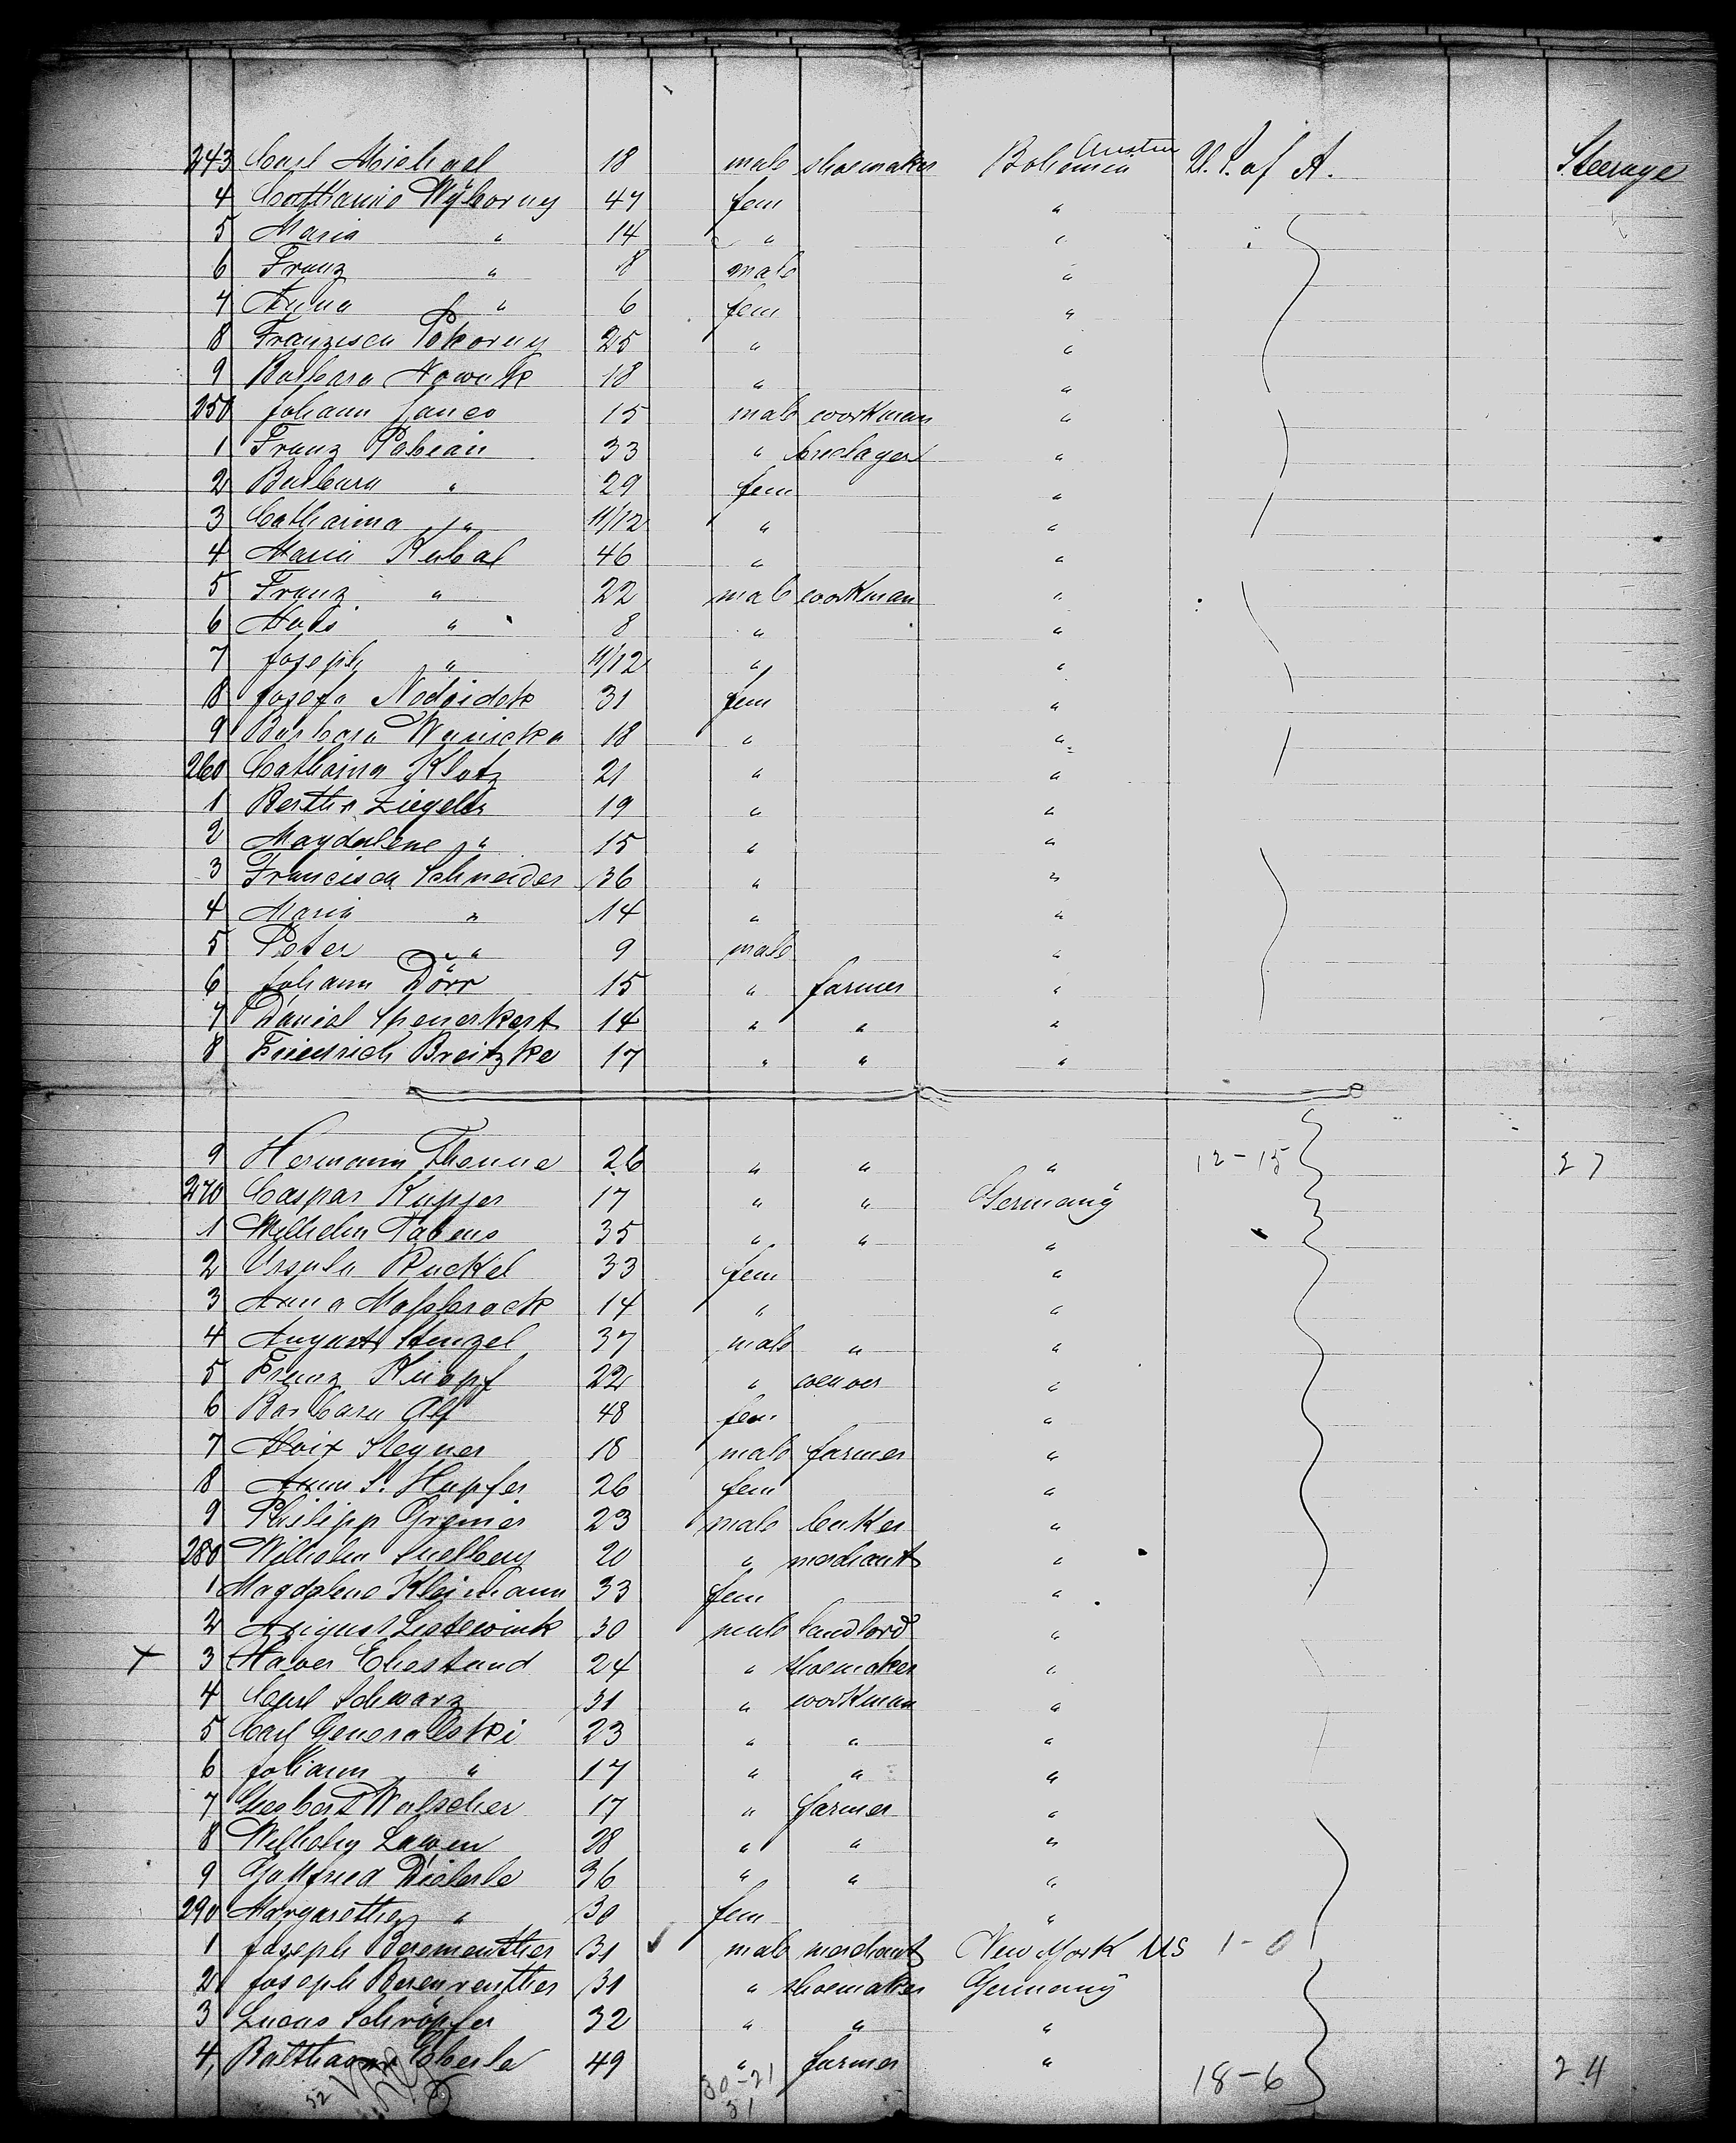 243 Carl Michael 18 male shoemaker Bohemia Austria U. S. of A. Steerage
4 Catharine Wÿborny 47 fem "
5 Maria " 14 " "
6 Franz " 8 male "
7 Anna " 6 fem "
8 Franzisca Pokorny 25 " "
9 Barbara Nowak 18 " "
250 Johann Janco 15 male workman "
1 Franz Pabian 33 " "
2 Barbara " 29 fem "
3 Catharina " 11/12 " "
4 Maria Kubal 46 " "
5 Franz " 22 male workman "
6 " 8 " "
7 Joseph " 11/12 " "
8 Josefa 31 fem "
9 Barbara Wanicka 18 " "
260 Catharina Klotz 21 " "
1 Bertha Ziegler 19 " "
2 Magdalene " 15 " "
3 Francisca Schneider 36 " "
4 Maria " 14 " "
5 Peter " 9 male "
6 Johann Dörr 15 " farmer "
7 Daniel 14 " " "
8 Friedrich Breitzke 17 " " "
9 Hermann Thenne 26 " " " 12-15 27
270 Caspar Kupfer 17 " " Germany
1 Wilhelm 35 " " "
2 Ursula Ruckel 33 fem "
3 Anna Maßbrock 14 " "
4 August Stenzel 37 male " "
5 Franz Knopf 22 " weaver "
6 Barbara Alf 48 fem "
7 Alois Stegner 18 male farmer "
8 Anna S. Hupfer 26 fem "
9 Philipp Greiner 23 male baker "
280 Wilhelm Snelberg 20 " merchant "
1 Magdalene Kleimann 33 fem "
2 August 30 male landlord "
X 3 Xaver Ehestand 24 " shoemaker "
4 Carl Schwarz 31 " workman "
5 Carl Generalski 23 " " "
6 Johann " 17 " " "
7 17 " farmer "
8 Wilhelm Lawen 28 " " "
9 Gottfried Dieterle 36 " " "
290 Margarethe " 30 fem "
1 Joseph Berementher 31 male merchant New York US 1-0
2 Joseph Berenrenther 31 " shoemaker Germany
3 Lucas Schröpfer 32 " " "
4 Balthasar Eberle 49 " farmer " 18-6 24
52 30-21
31